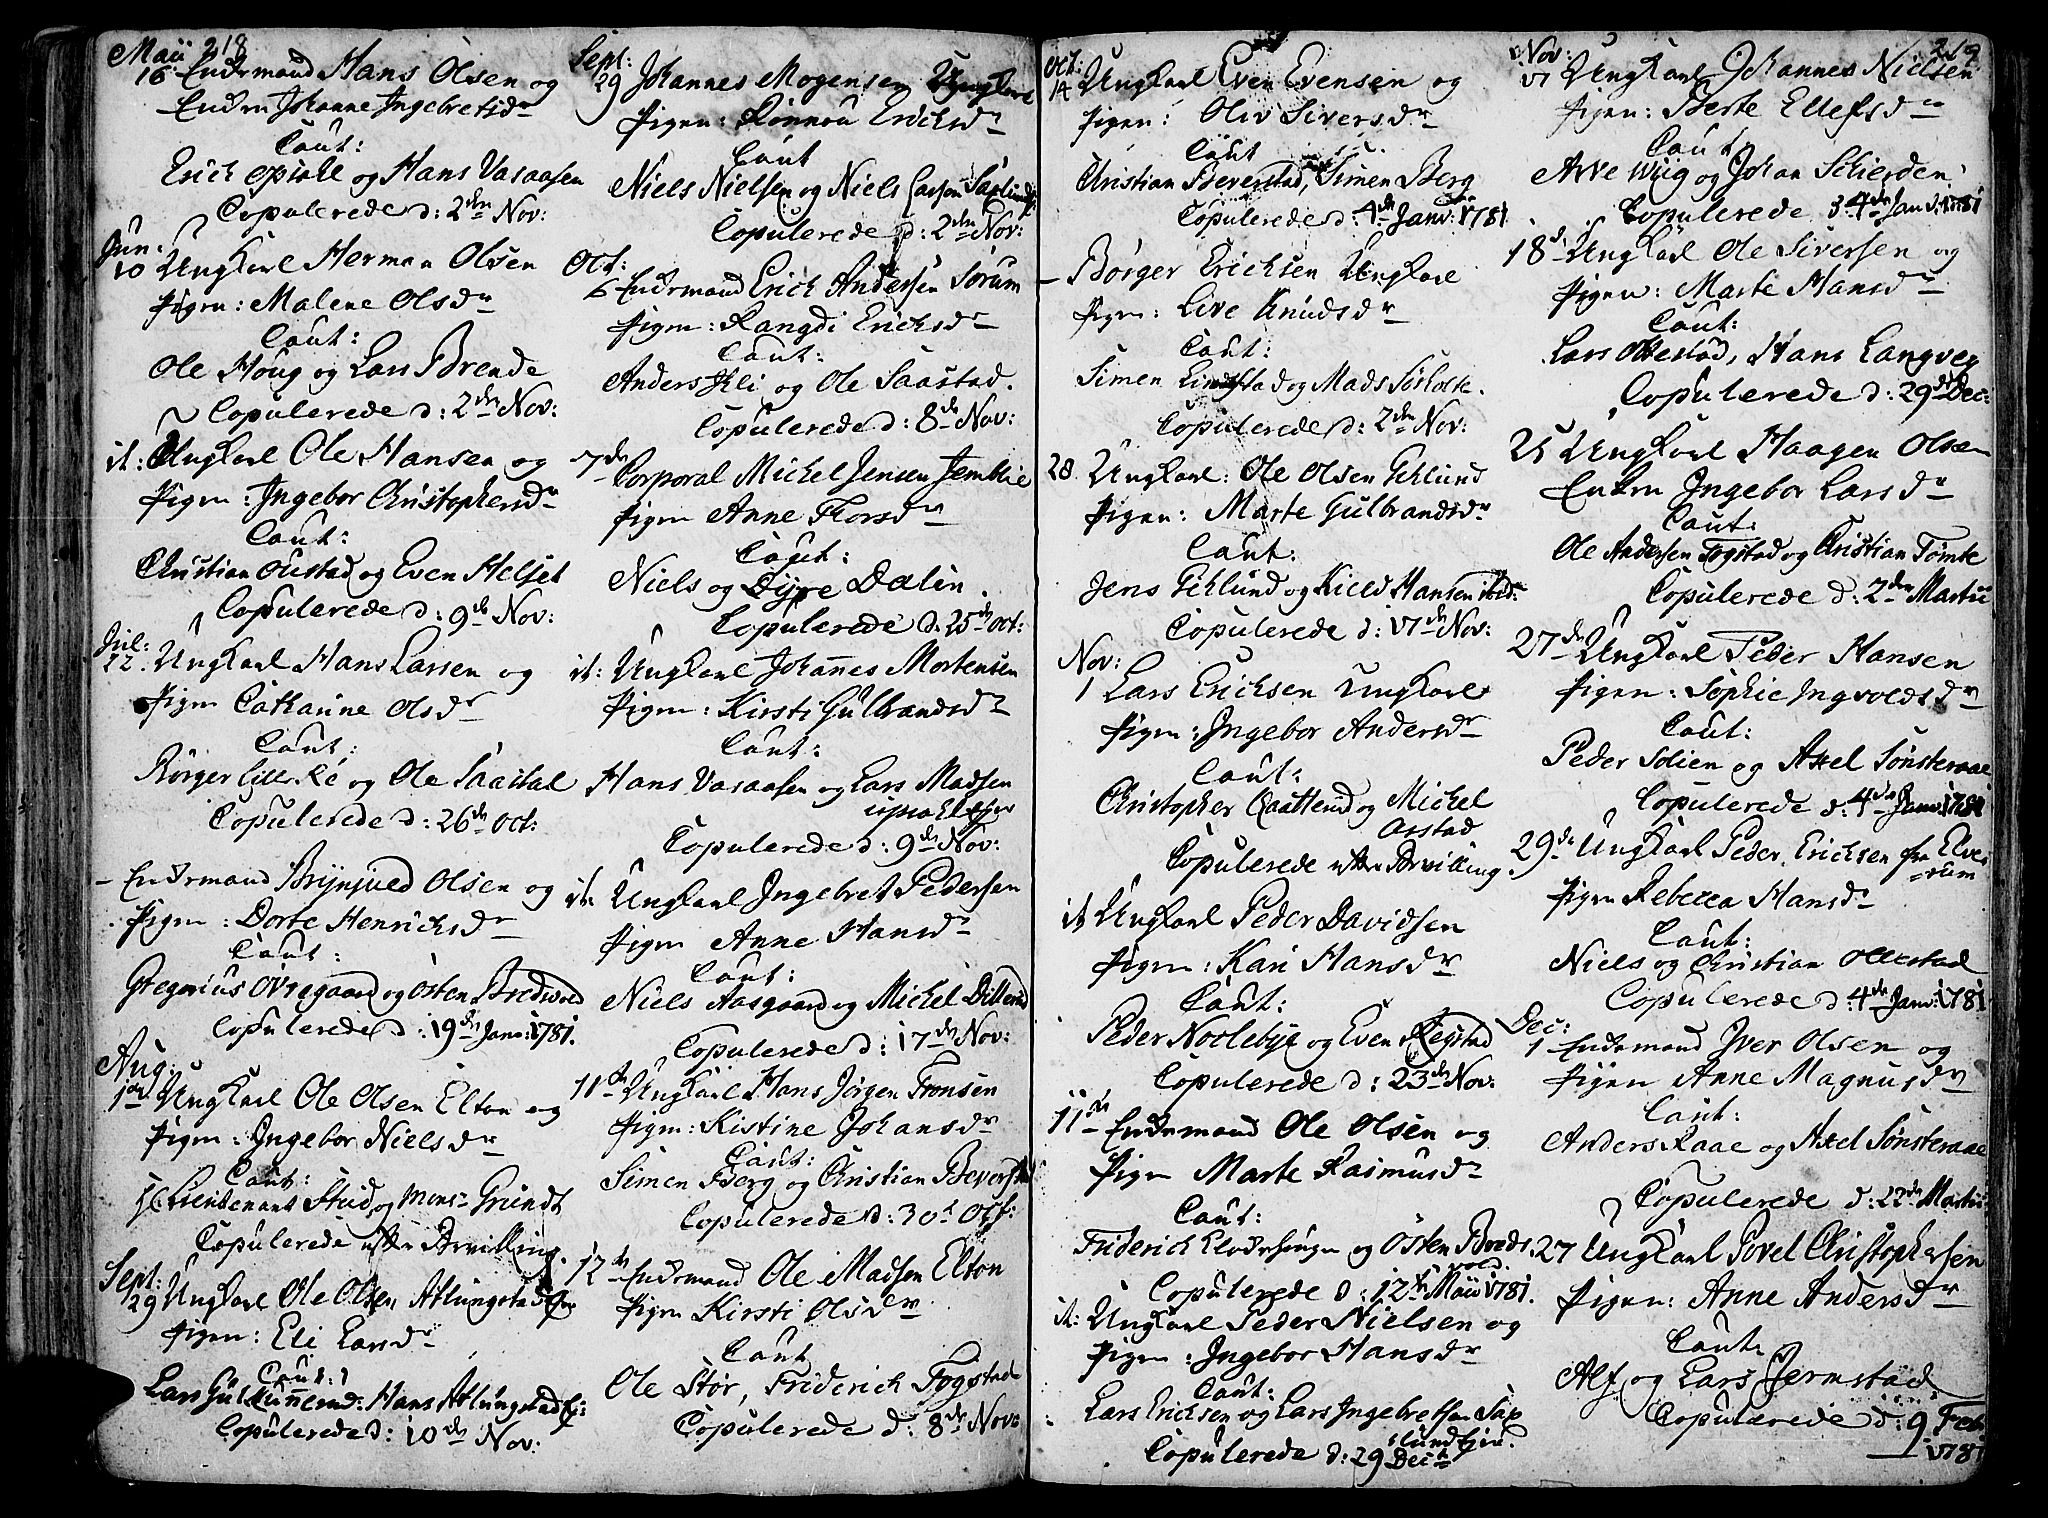 Maii 218
16 Enckemand Hans Olsen og
Enken Johanne Ingebretsdr
Caut:
Erich opsahl og Hans Vasaasen
Copulerede d: 2den Nov:
Jun:
10 Ungkarl Herman Olsen
Pigen: Malene Olsdr
Caut:
Ole Houg og Lars Brende
Copulerede d: 2den Nov:
it: Ungkarl Ole Hansen og
Pigen: Ingebor Christophersdr
Caut:
Christian Oustad og Even Helset
Copulerede d: 9de Nov:
Jul:
22. Ungkarl Hans Larsen og
Pigen Catharine Olsdr
Caut:
Børger Lille Ré og Ole Saastad
Copulerede d: 26de Oct:
- Enkemand Brynjued Olsen og
Pigen: Dorte Henrichsdr
Caut:
Gregorius Øvregaard og Østen Bredvold
Copulerede d: 19de Janv: 1781.
Aug:
1ste Ungkarl Ole Olsen Elton og
Pigen: Ingebor Nielsdr
Caut:
Hr Lieutenant Stud og Mons: Grundt
Copulerede efter Bevilling
Sept:
29 Ungkarl Ole Olsen Atlungstad Ejer
Pigen: Eli Larsdr
Caut:
Lars Hans Atlungstad Ej:
Copulerede d: 10de Nov:
Sept:
29 Johannes Mogensen Ungkarl
Pigen: Rönnou Ericksdr
Caut
Niels Nielsen og Niels Larsen Saxlund Ej:
Copulerede d: 2den Nov:
Oct:
6 Enkemand Erich Andersen Sørum
Pigen: Rangdi Ericksdr
Caut:
Anders Kli og Ole Saastad.
Copulerede d: 8de Nov:
7de Corporal Michel Jensen Jemblie
Pigen Anne Thorsdr
Caut:
Niels og Dyre Dalin.
Copulerede d: 25de Oct:
it: Ungkarl Johannes Mortensen
Pigen: Kirsti Gulbrandsdr
Caut:
Hans Vasaasen og Lars Madsen
opsahl Ejer
Copulerede d: 9de Nov:
it: Ungkarl Ingebret Pedersen
Pigen Anne Hansdr
Caut:
Niels Aasgaard og Michel Dillerud
Copulerede d: 17de Nov:
11te Ungkarl Hans Jørgen Tronsen
Pigen: Kistine Johansdr
Caut:
Simen Berg og Christian Beverstad
Copulerede d: 30t Oct:
12te Enkemand Ole Madsen Elton
Pigen Kirsti Olsdr
Caut
Ole Stör, Friderich Togstad
Copulerede d: 8de Nov:
219
Oct:
14 Ungkarl Even Evensen og
Pigen: Oliv Siversdr
Caut
Christian Beverstad, Simen Berg
Copulerede d: 4de Janv: 1781
- Børger Erichsen Ungkarl
Pigen: Live Knudsdr
Caut:
Simen Lindstad og Mads Sørholte.
Copulerede d: 2den Nov:
28. Ungkarl: Ole Olsen Echlund
Pigen: Marte Gulbrandsdr
Caut:
Jens Echlund og Kield Hansen ibid:
Copulerede d: 17de Nov:
Nov:
1 Lars Ericksen Ungkarl
Pigen: Ingebor Andersdr
Caut:
Christopher Qaatterud og Michel
Orstad
Copulerede efter Bevilling
it Ungkarl Peder Davidsen
Pigen: Kari Hansdr
Caut:
Peder Norlebye og Even Røgstad
Copulerede d: 23de Nov:
11te Enkemand Ole Olsen og
Pigen Marte Rasmusdr
Caut:
Friderich Klockersongen og Østen Breds
vold.
Copulerede d: 12te Maii 1781.
it: Ungkarl Peder Nielsen og
Pigen: Ingebor Hansdr
Caut:
Lars Ericksen og Lars Ingebretsen Sax
lund Ejer.
Copulerede d: 29 Decbr
Nov:
17 Ungkarl Johannes Nielsen
Pigen: Berte Ellefsdr
Caut
Arve Wiig og Johan Schierden
Copulerede d 4de Janv: 1781
18de Ungkarl Ole Siversen og
Pigen: Marte Hansdr
Caut:
Lars Ottestad, Hans Langveg
Copulerede d: 29de Dec:
25 Ungkarl Haagen Olsen
Enken Ingebor Larsdr
Caut:
Ole Andersen Togstad og Christian Tomte
Copulerede d: 2den Martii
27de Ungkarl Peder Hansen
Pigen: Sophie Ingvoldsdr
Caut:
Peder Solien og Axel Sønsteraae
Copulerede d: 4de Janv: 1781
29de Ungkarl Peder Erichsen fra Elve
rum
Pigen Rebecca Hansdr
Caut:
Niels og Christian Ottestad
Copulerede d: 4de Janv: 1781
Dec:
1 Enkemand Iver Olsen og
Pigen Anne Magnusdr
Caut:
Anders Raae og Axel Sønsteraae
Copulerede d: 22de Martii
27 Ungkarl Povel Christophersen
Pigen: Anne Andersdr
Caut
Alf og Lars Jermstad
Copulerede d: 9 Feb:
1781